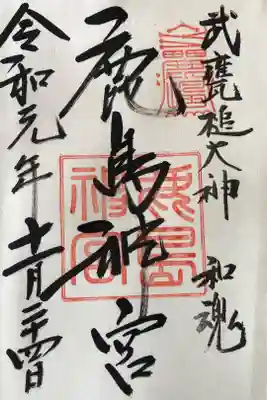 武甕槌大神　和魂
鹿島神宮
鹿島
神宮
令和元年十一月二十四日